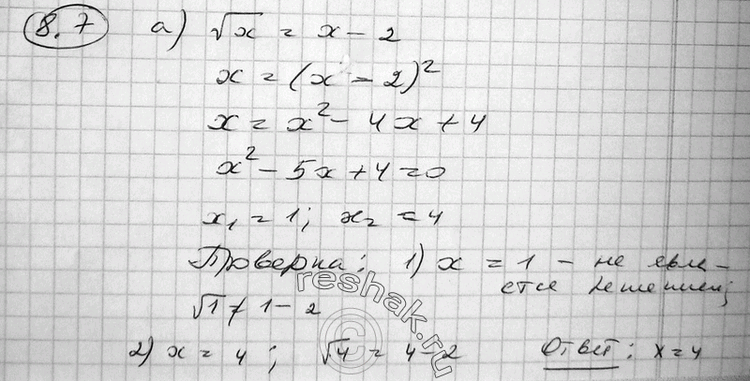 8.7 а) √x = x - 2
x = (x - 2)²
x = x² - 4x + 4
x² - 5x + 4 = 0
x₁ = 1; x₂ = 4
Проверка: 1) x = 1 - не явля-
ется решением;
√1 ≠ 1 - 2
2) x = 4; √4 = 4 - 2 Ответ: x = 4
reshak.ru